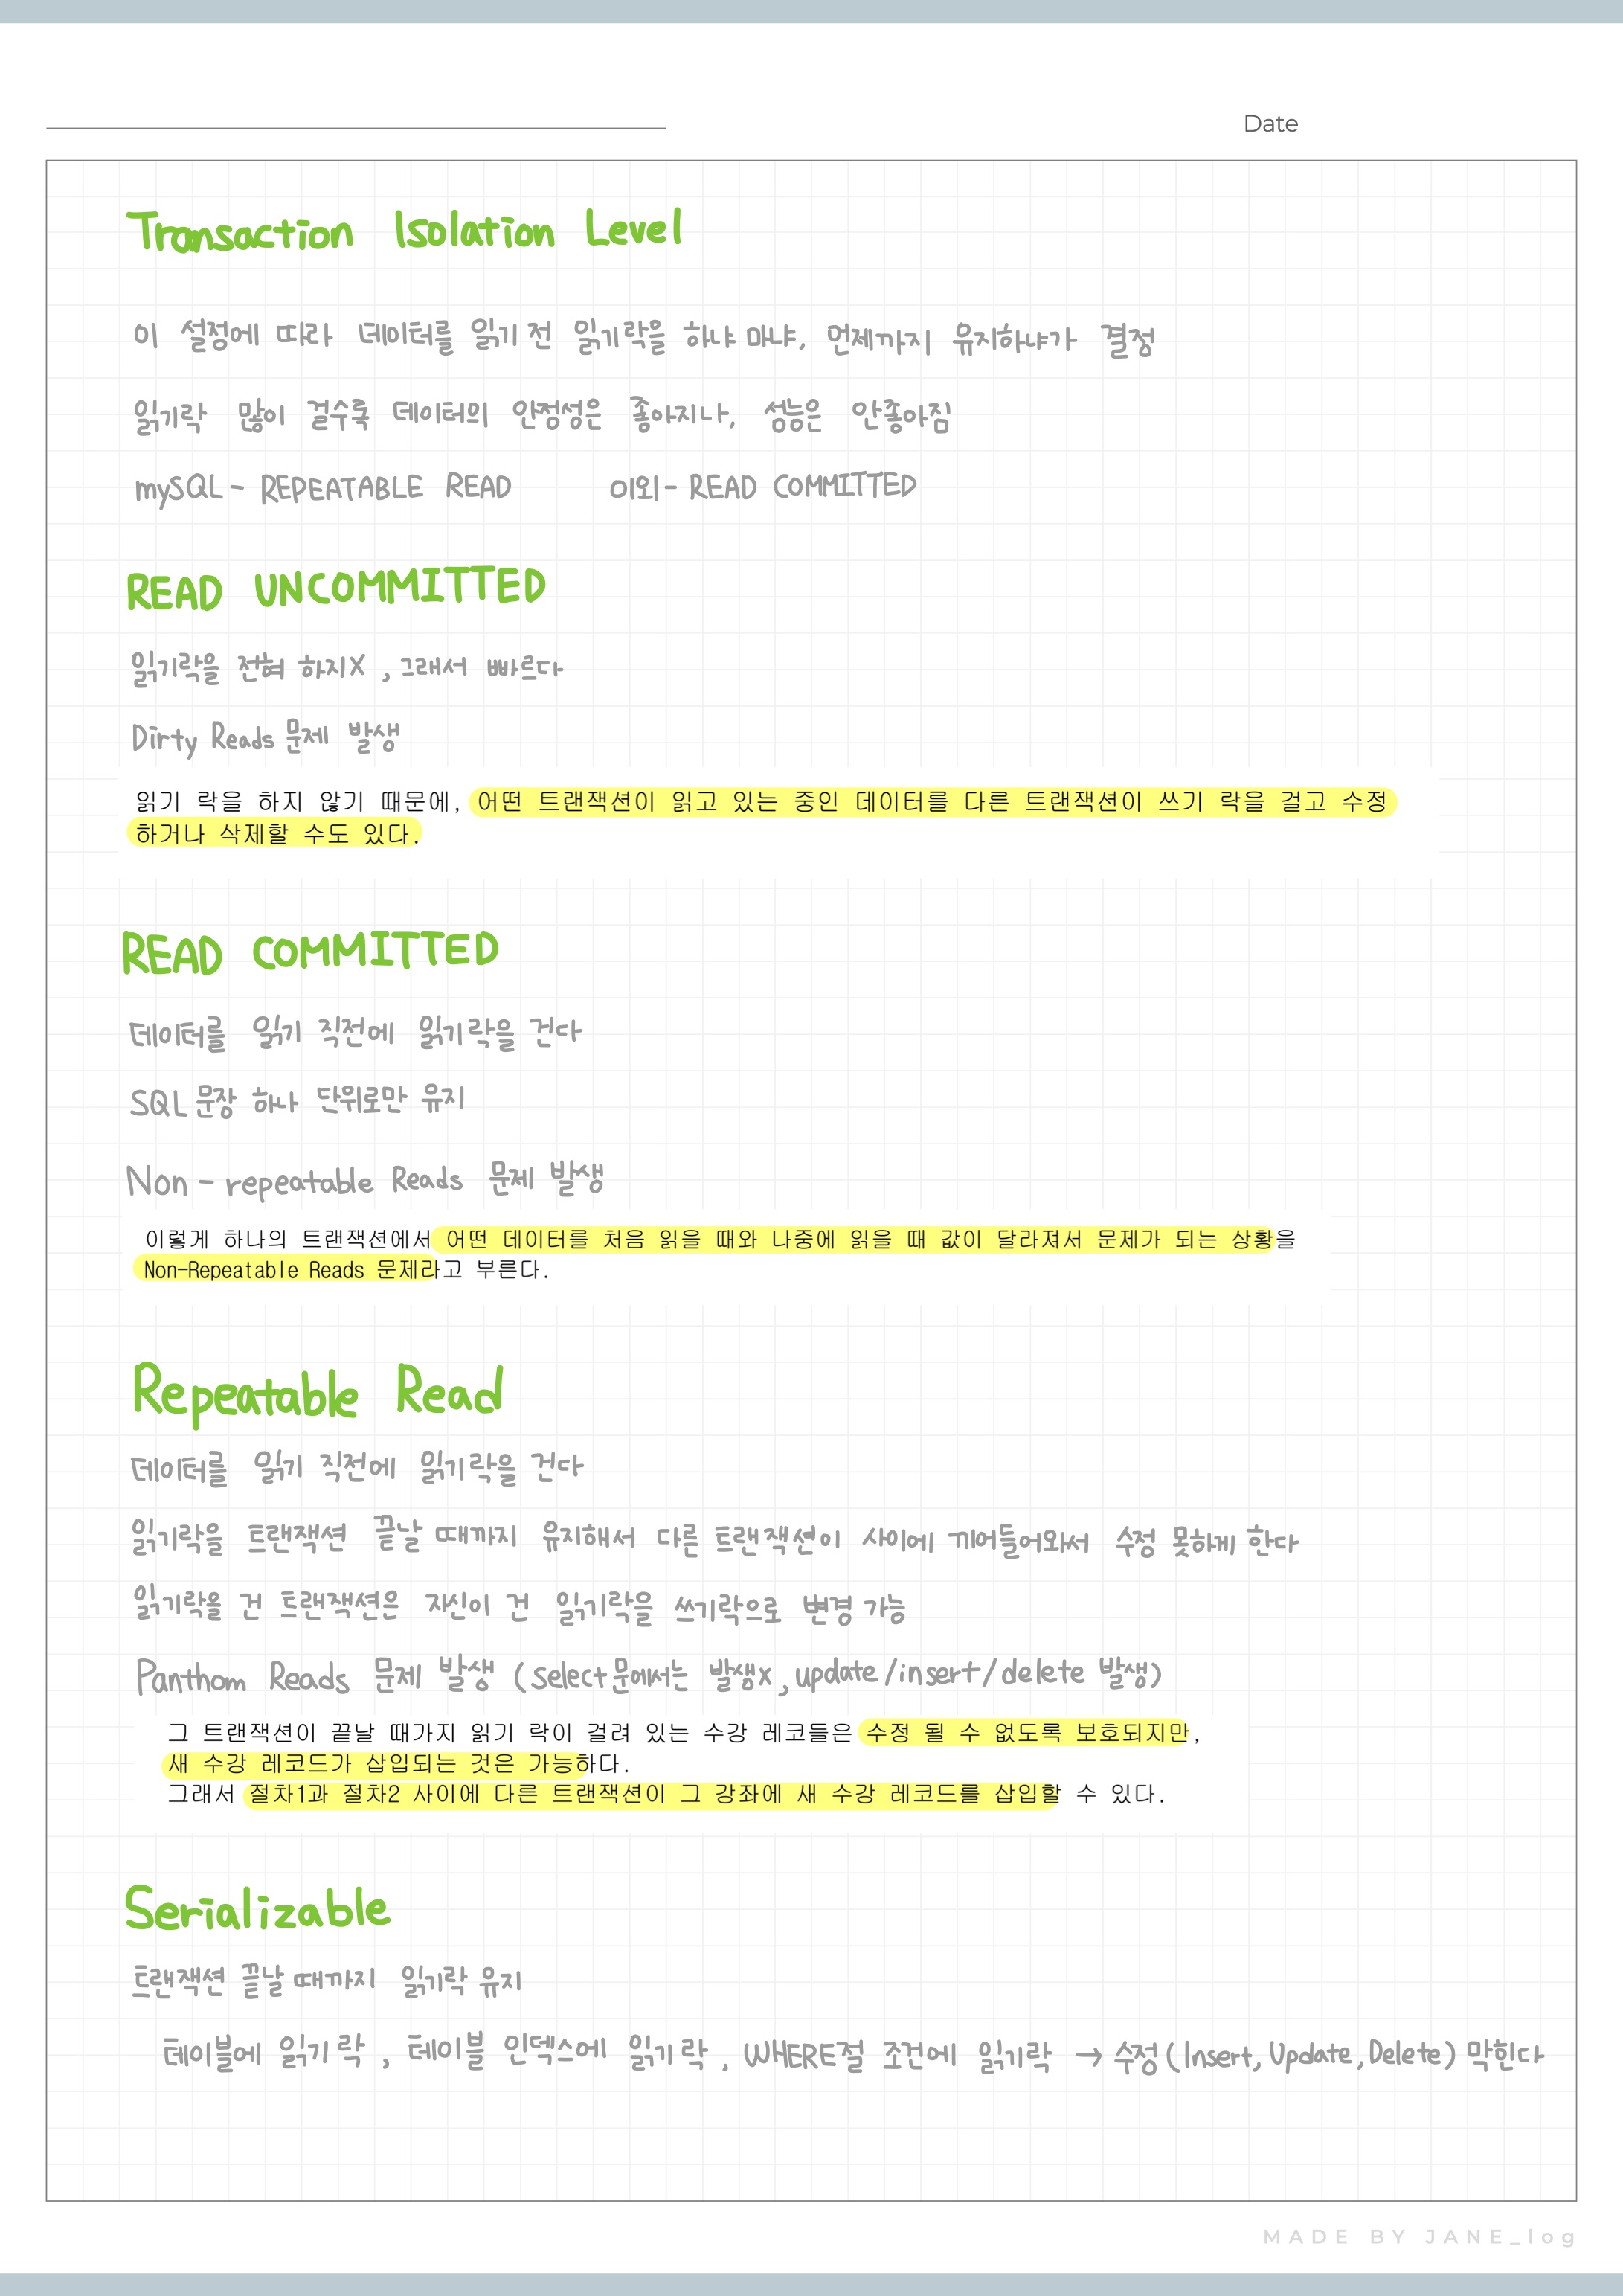 Date
Transaction Isolation Level
이 설정에 따라 데이터를 읽기 전 읽기락을 하냐 마냐, 언제까지 유지하냐가 결정
읽기락 많이 걸수록 데이터의 안정성은 좋아지나, 성능은 안좋아짐
mySQL - REPEATABLE READ 이외 - READ COMMITTED
READ UNCOMMITTED
읽기락을 전혀 하지X , 그래서 빠르다
Dirty Reads 문제 발생
읽기 락을 하지 않기 때문에, 어떤 트랜잭션이 읽고 있는 중인 데이터를 다른 트랜잭션이 쓰기 락을 걸고 수정
하거나 삭제할 수도 있다.
READ COMMITTED
데이터를 읽기 직전에 읽기락을 건다
SQL 문장 하나 단위로만 유지
Non - repeatable Reads 문제 발생
이렇게 하나의 트랜잭션에서 어떤 데이터를 처음 읽을 때와 나중에 읽을 때 값이 달라져서 문제가 되는 상황을
Non-Repeatable Reads 문제라고 부른다.
Repeatable Read
데이터를 읽기 직전에 읽기락을 건다
읽기락을 트랜잭션 끝날 때까지 유지해서 다른 트랜잭션이 사이에 끼어들어와서 수정 못하게 한다
읽기락을 건 트랜잭션은 자신이 건 읽기락을 쓰기락으로 변경 가능
Panthom Reads 문제 발생 (select문에서는 발생x, update/insert/delete 발생)
그 트랜잭션이 끝날 때가지 읽기 락이 걸려 있는 수강 레코들은 수정 될 수 없도록 보호되지만,
새 수강 레코드가 삽입되는 것은 가능하다.
그래서 절차1과 절차2 사이에 다른 트랜잭션이 그 강좌에 새 수강 레코드를 삽입할 수 있다.
Serializable
트랜잭션 끝날 때까지 읽기락 유지
테이블에 읽기락 , 테이블 인덱스에 읽기락 , WHERE절 조건에 읽기락 → 수정 (Insert, Update, Delete) 막힌다
MADE BY JANE_log